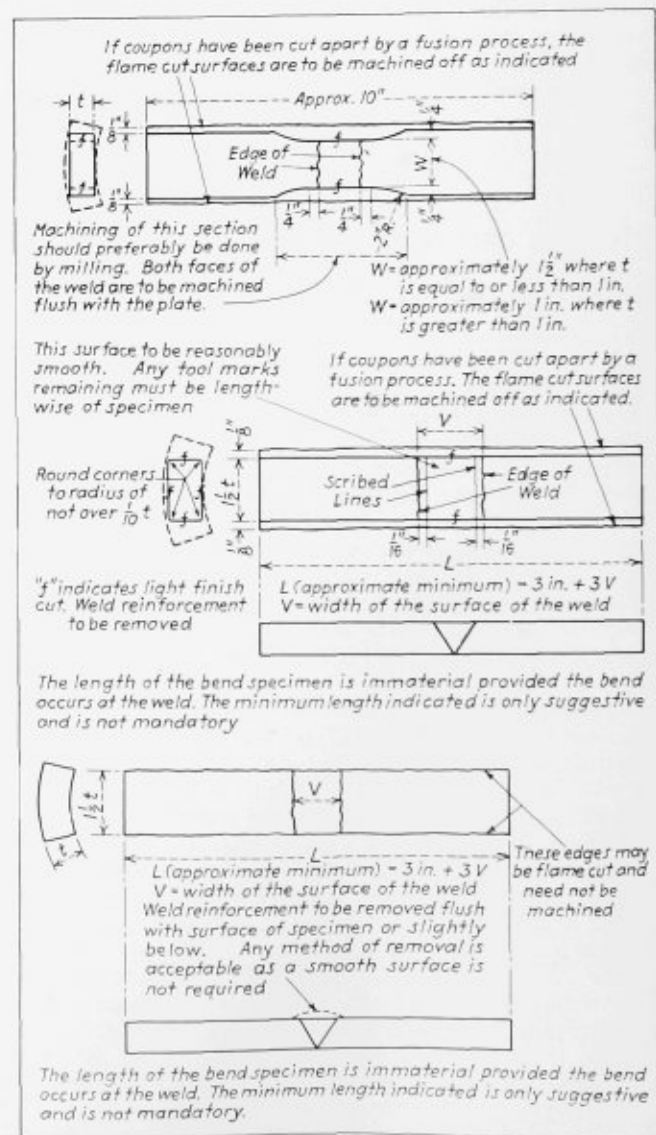 If coupons have been cut apart by a fusion process, the
flame cut surfaces are to be machined off as indicated
t
Approx. 10"
1/8"
f
f
1/8"
Edge of
Weld
f
f
1/4"
W
1/4"
1/4"
1/4"
2"R.
Machining of this section
should preferably be done
by milling. Both faces of
the weld are to be machined
flush with the plate.
W = approximately 1 1/2" where t
is equal to or less than 1 in.
W = approximately 1 in. where t
is greater than 1 in.
This surface to be reasonably
smooth. Any tool marks
remaining must be length-
wise of specimen
If coupons have been cut apart by a
fusion process. The flame cut surfaces
are to be machined off as indicated.
V
1/8"
f
Round corners
to radius of
not over 1/10 t
f
f
1 1/2 t
Scribed
Lines
Edge of
Weld
f
1/8"
1/16"
1/16"
L
"f" indicates light finish
cut. Weld reinforcement
to be removed
L (approximate minimum) = 3 in. + 3 V
V = width of the surface of the weld
The length of the bend specimen is immaterial provided the bend
occurs at the weld. The minimum length indicated is only suggestive
and is not mandatory
1 1/2 t
V
t
L
L (approximate minimum) = 3 in. + 3 V
V = width of the surface of the weld
Weld reinforcement to be removed flush
with surface of specimen or slightly
below. Any method of removal is
acceptable as a smooth surface is
not required
These edges may
be flame cut and
need not be
machined
The length of the bend specimen is immaterial provided the bend
occurs at the weld. The minimum length indicated is only suggestive
and is not mandatory.